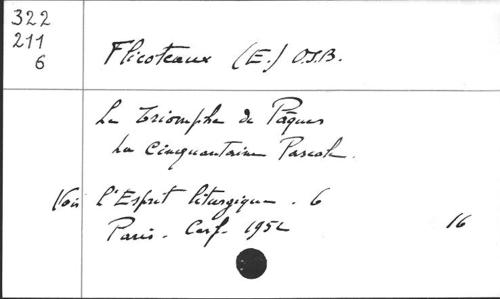 322
211
6
Flicoteaux (E.) O.S.B.
Le Triomphe de Pâques
La Cinquantaine Pascale.
Voir l'Esprit liturgique. 6
Paris. Cerf. 1952
16